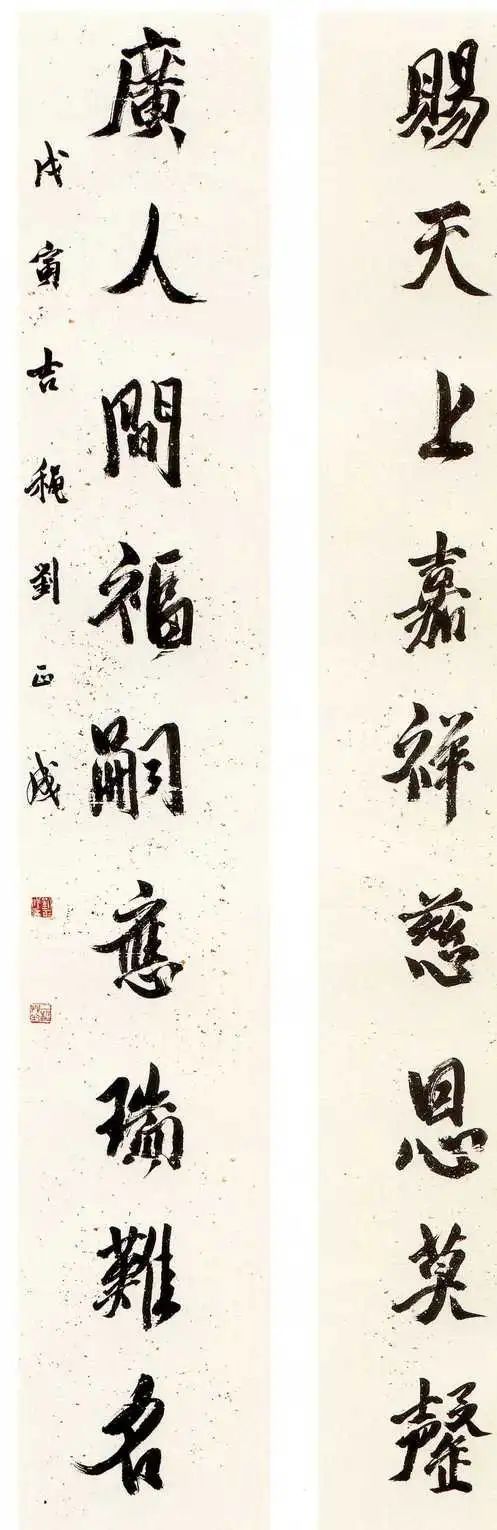 賜天上嘉祥慈恩莫罄
廣人間福嗣應瑞難名
戊寅吉穐劉正成